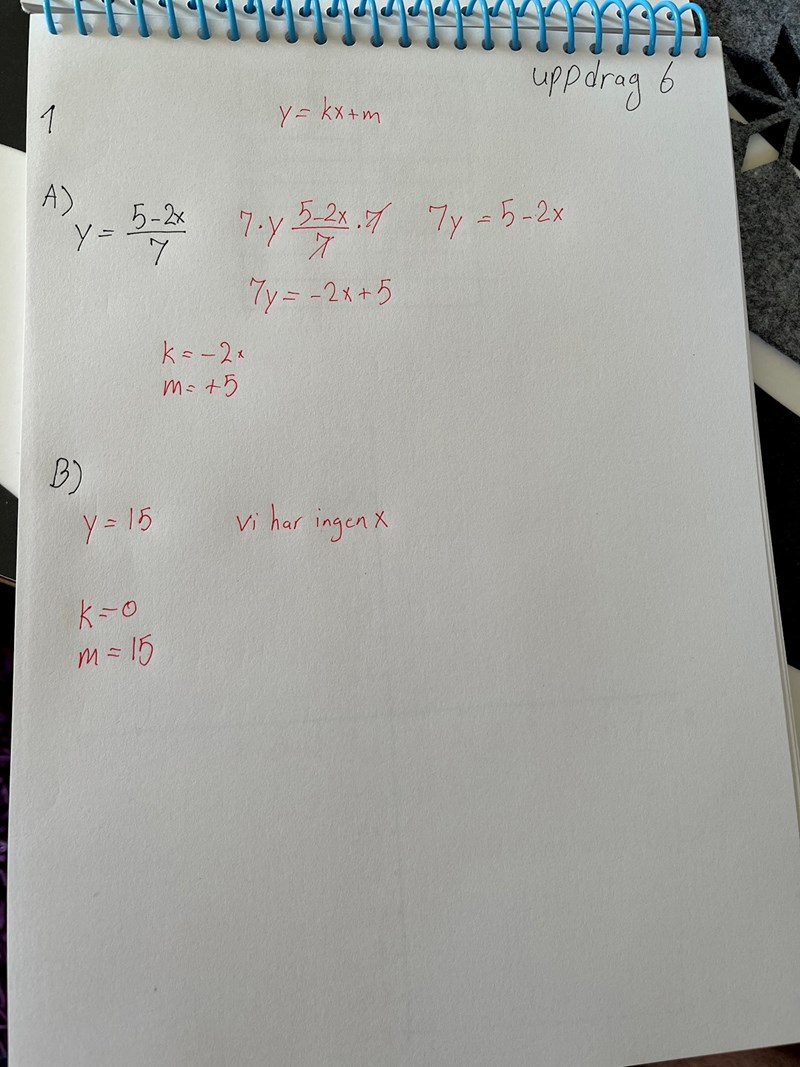 uppdrag 6
1 y = kx+m
A)
y = \frac{5-2x}{7} 7·y \frac{5-2x}{7}·7 7y = 5-2x
7y = -2x+5
k = -2x
m = +5
B)
y = 15 vi har ingen x
k = 0
m = 15